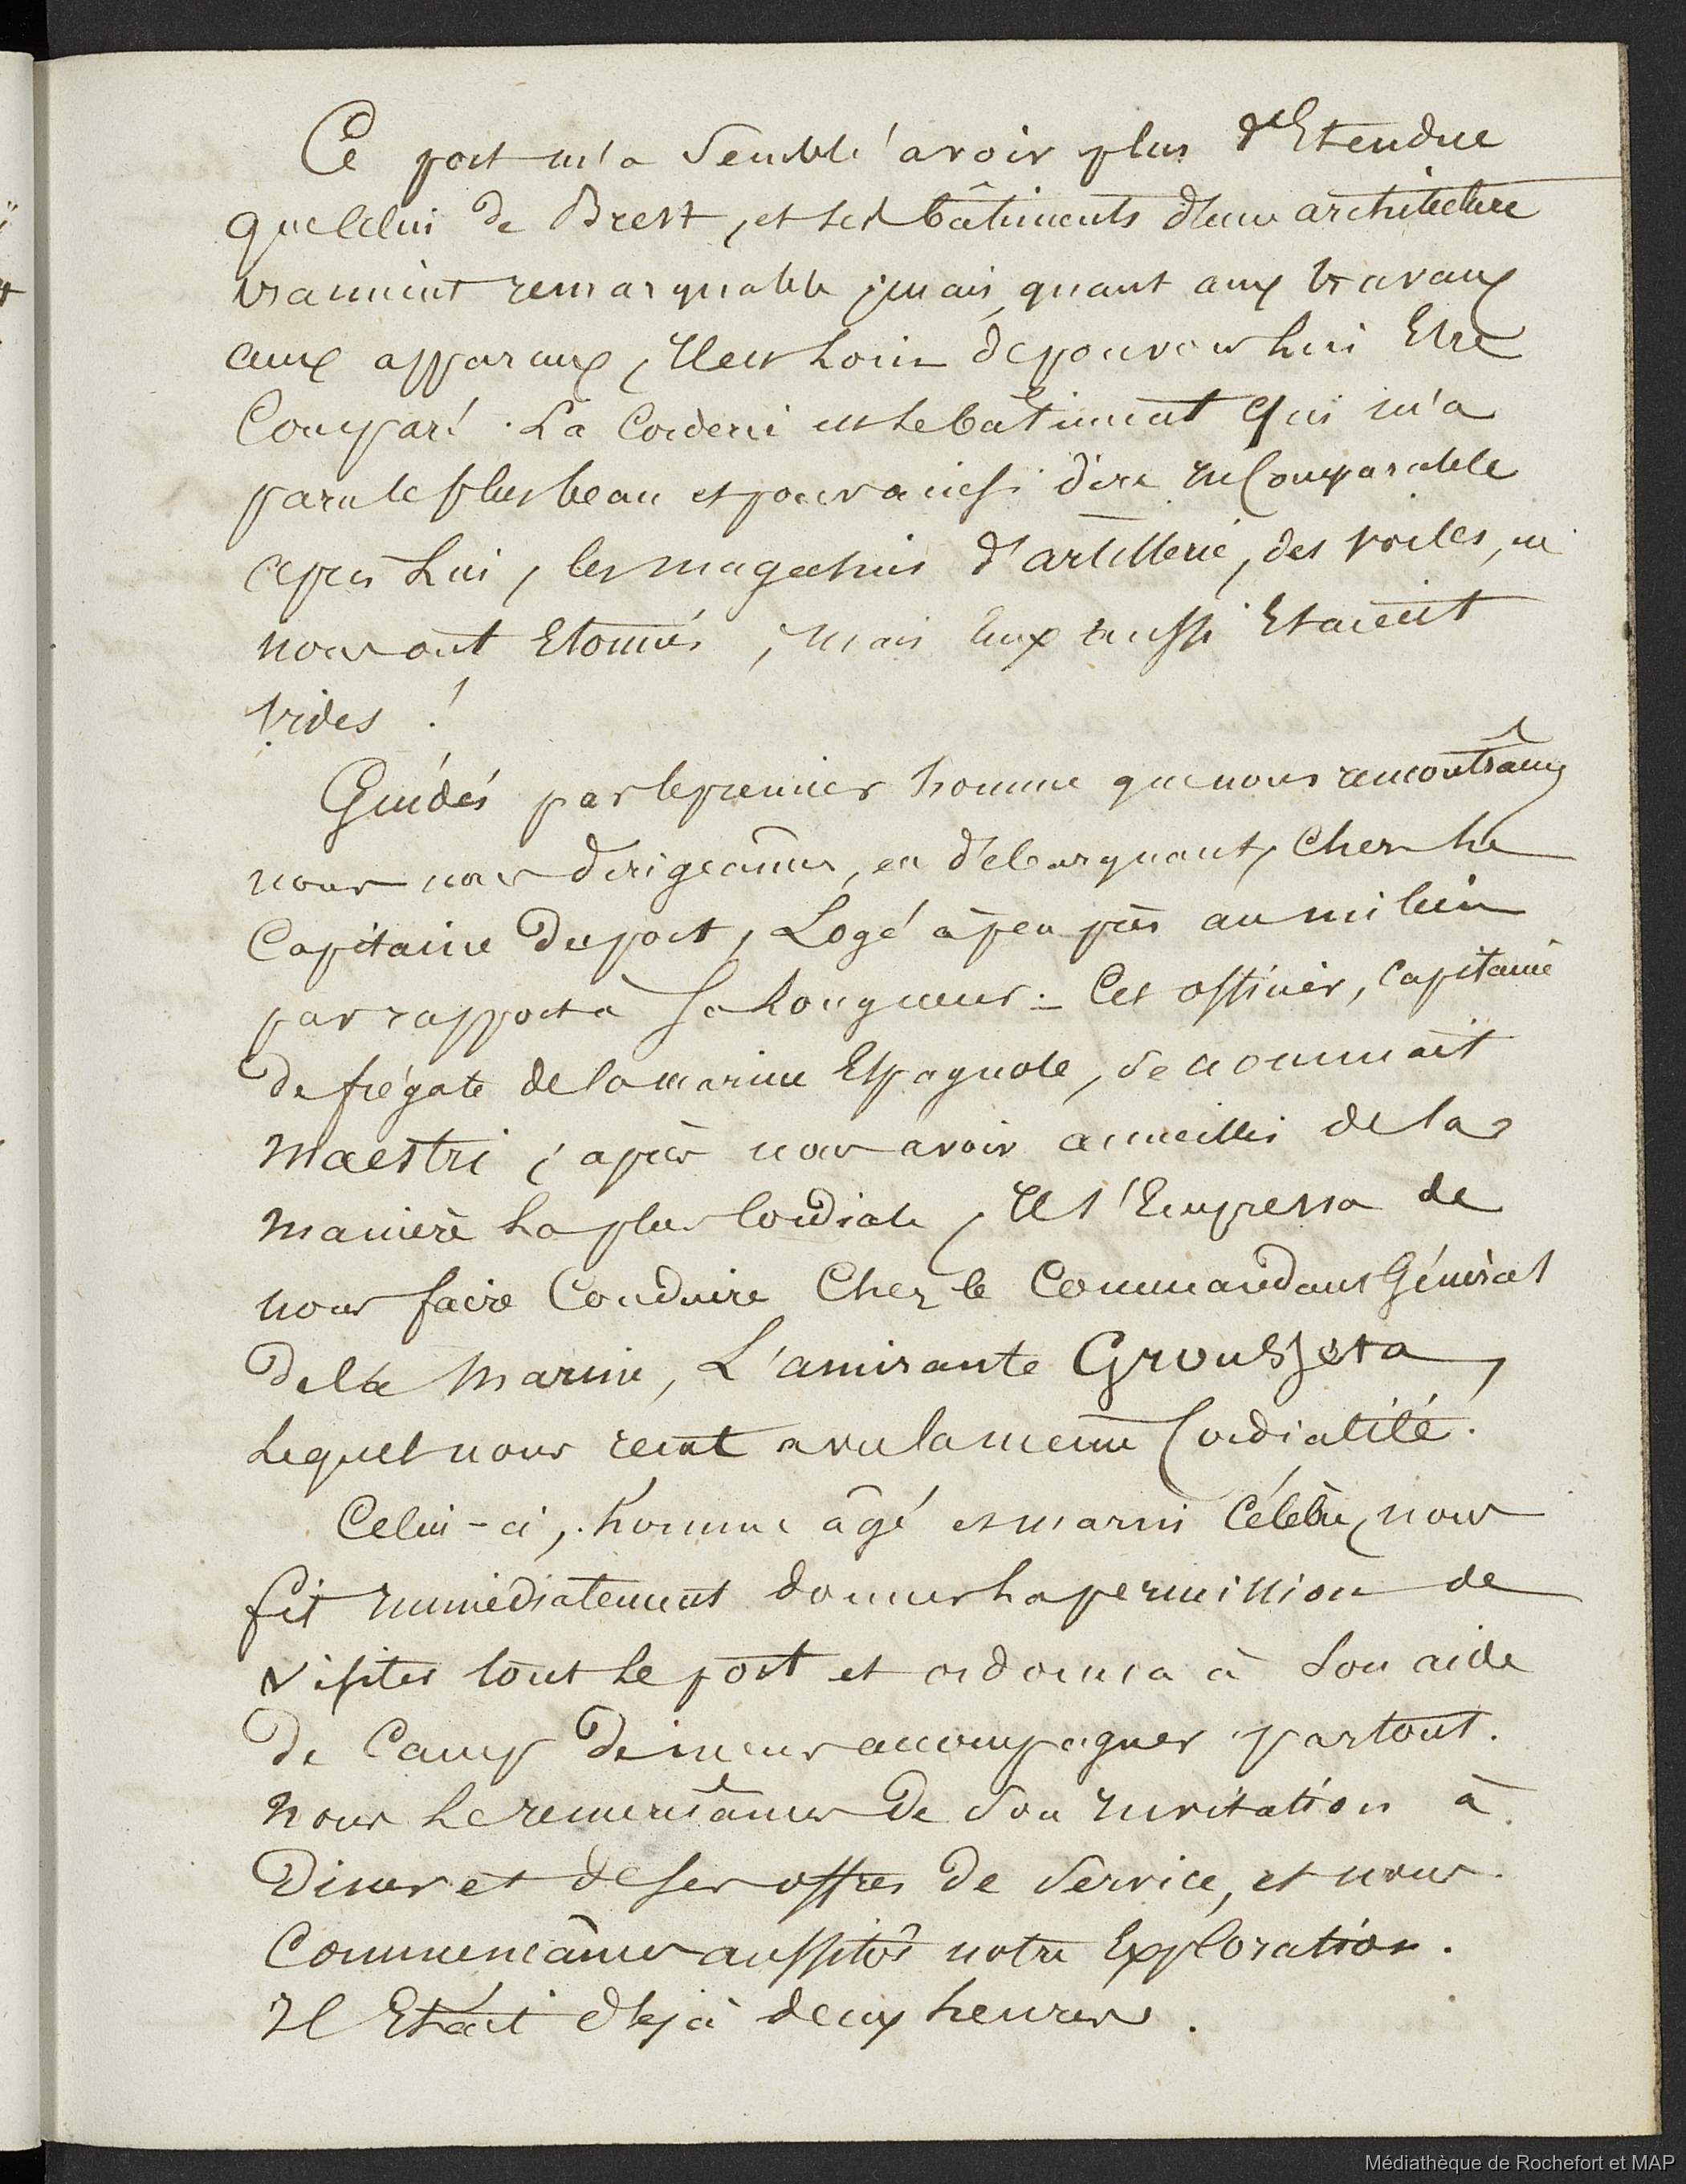 Ce port m'a semblé avoir plus d'Etendue
que celui de Brest, et ses bâtiments d'une architecture
vraiment remarquable ; mais, quant aux travaux
aux apparaux, Il est Loin de pouvoir lui Etre
Comparé. La Corderie est le bâtiment qui m'a
paru le plus beau et pour ainsi dire InComparable
après Lui, les magasins d'artillerie, des voiles, &a
nous ont Etonnés, mais Eux aussi Etaient
vides !
Guidés par le premier homme que nous rencontrâmes
nous nous dirigeâmes, en débarquant, Chez le
Capitaine du port, Logé à peu près au milieu
par rapport à Sa Longueur. - Cet officier, capitaine
de frégate de la marine Espagnole, se nommait
Maestri ; après nous avoir accueillis de la
manière la plus Cordiale, Il s'Empressa de
nous faire Conduire Chez le Commandant Général
de la Marine, L'amirante Groulszeta,
Lequel nous reçut avec la même Cordialité.
Celui-ci, homme âgé et marin Célèbre, nous
fit Immédiatement donner la permission de
visiter tout le port et ordonna à Son aide
de Camp de nous accompagner partout.
nous le remerciâmes de Son Invitation à
Diner et de Ses offres de Service, et nous
Commencâmes aussitôt notre Exploration.
Il Etait déjà deux heures.
Médiathèque de Rochefort et MAP